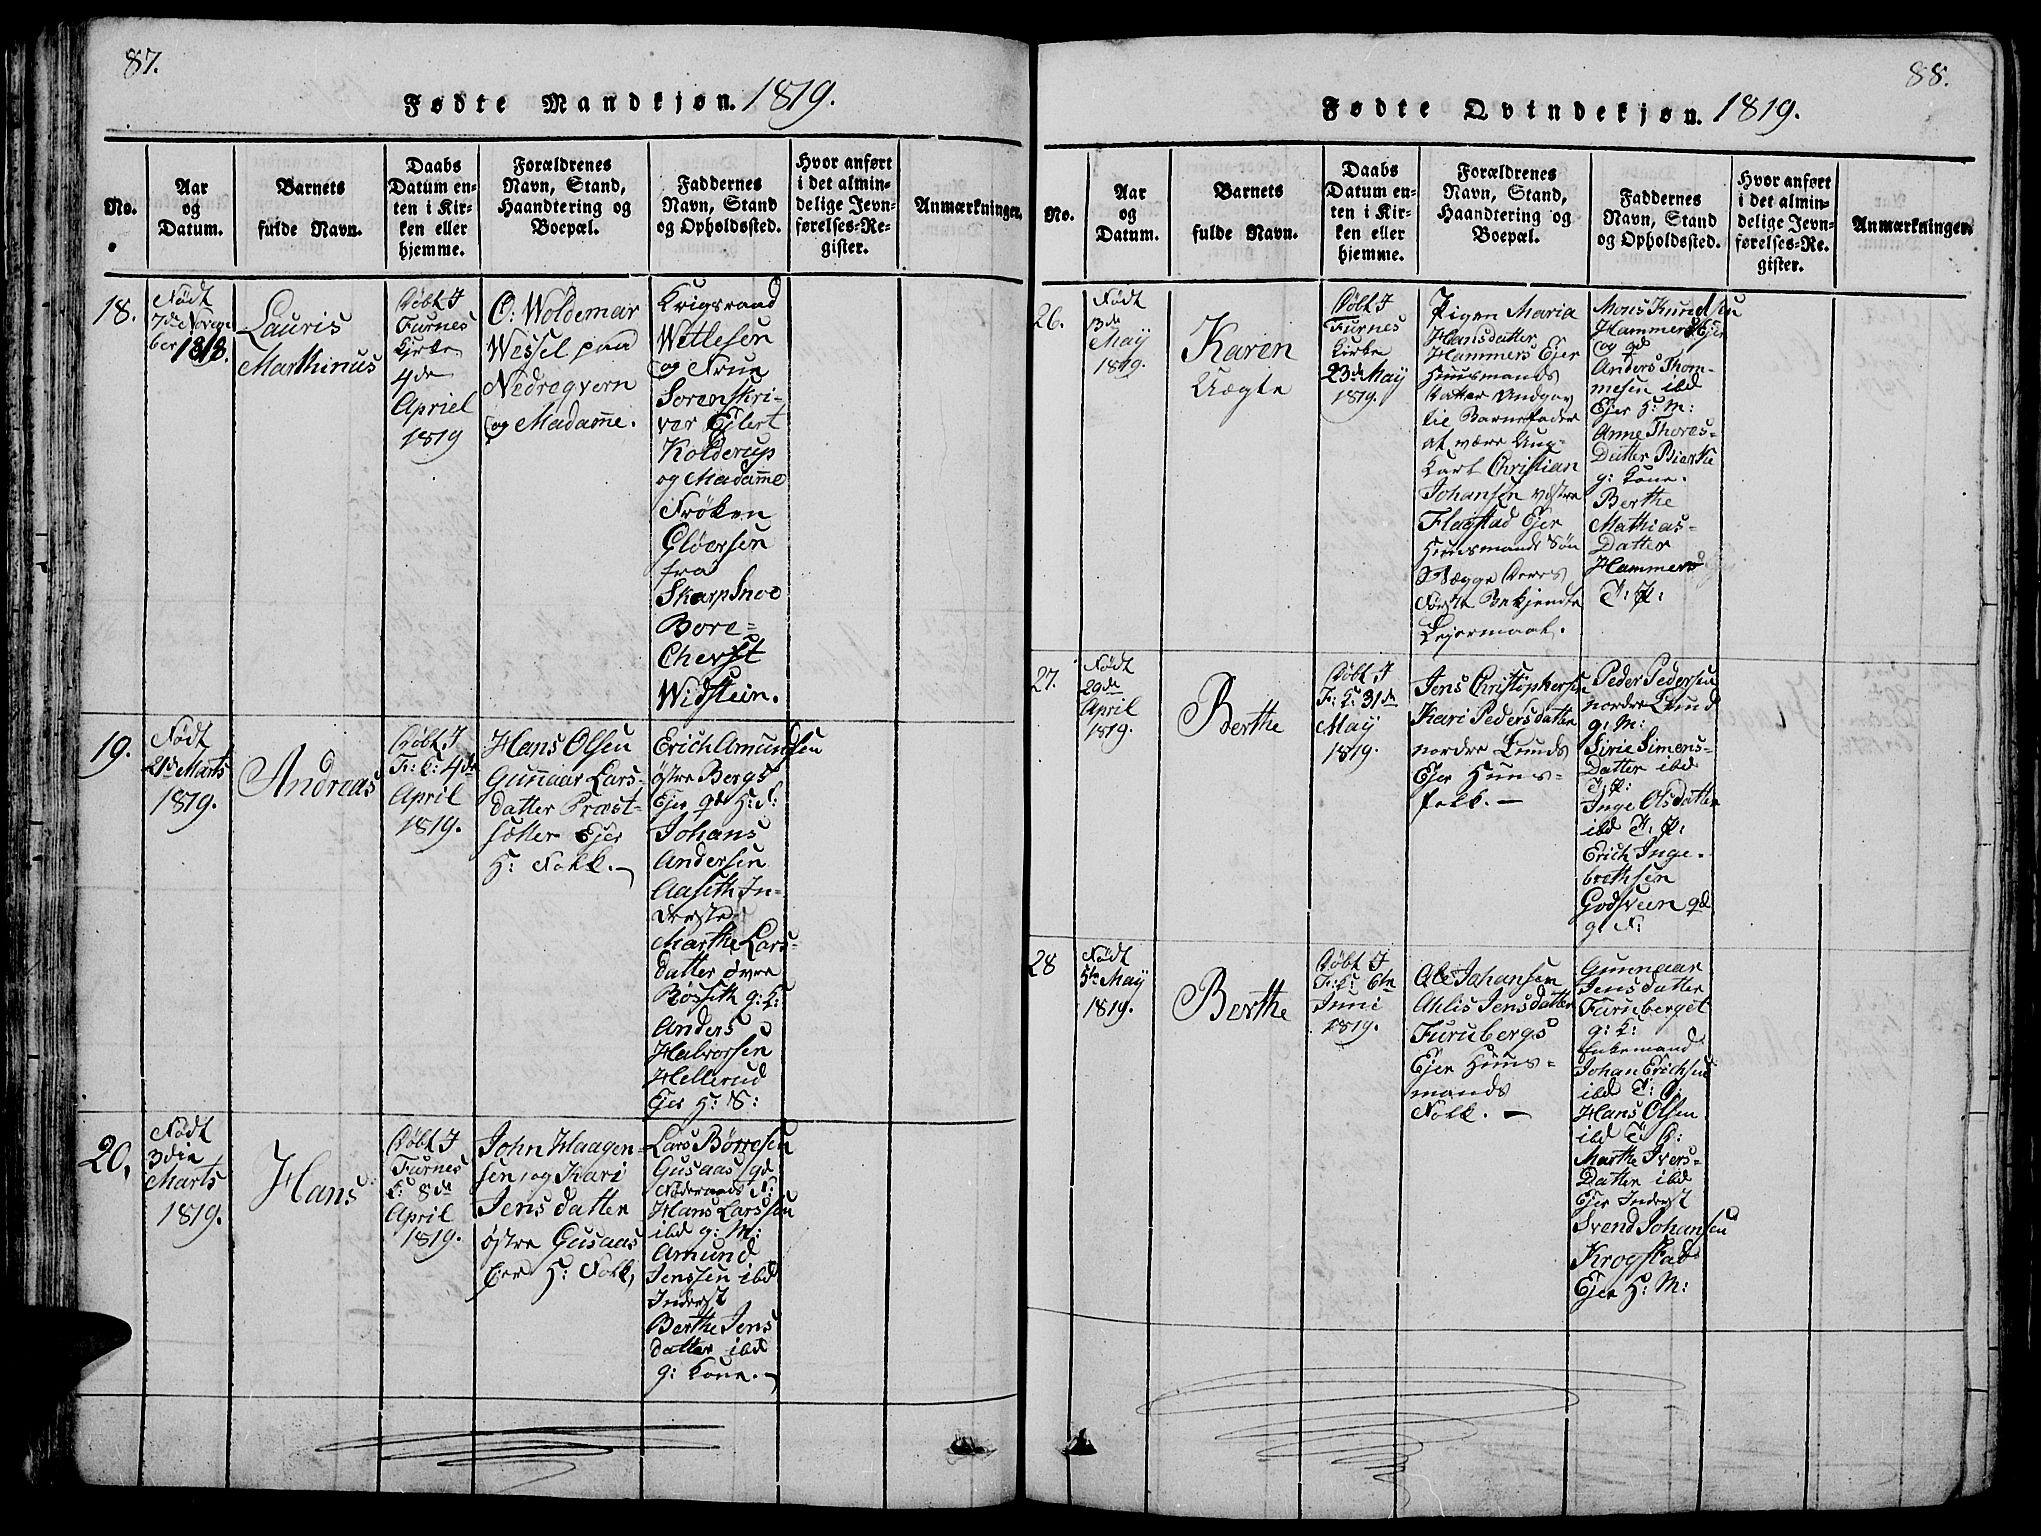 87.
Fødte Mandkjøn. 1819.
No.
Aar
og
Datum.
Barnets
fulde Navn.
Daabs
Datum en-
ten i Kir-
ken eller
hjemme.
Forældrenes
Navn, Stand,
Haandtering og
Boepæl.
Faddernes
Navn, Stand
og Opholdssted.
Hvor anført
i det almin-
delige Jevn-
førelses-Re-
gister.
Anmærkninger.
18.
Født
7de Novem
ber 1818.
Lauris
Marthinus
Døbt I
Furnes
Kirke
4de
Apriel
1819
O: Woldemar
Wessel paa
Nedregvern
og Madam̄e.
Krigsraad
Wetlesen
og Frue
Sorenskri-
ver Ejlert
Kolderup
og Madam̄e
Frøken
Gløersen
fra
Skarpsnoe
Bore-
Cherst
Widstein.
19.
Født
21de Marts
1819.
Andreas
Døbt I
F: K: 4de
April
1819.
Hans Olsen
Gun̄aar Lars-
datter Præst-
sætter Ejer
H: Folk.
Erich Amundsen
østre Bergs
Ejer gd H: S:
Johans
Andersen
Aaseth In-
derste
Marthe Lars-
datter øvre
Røsseth g: K:
Anders
Halvorsen
Hellerud
Ejer H: S:
20.
Født
3die
Marts
1819.
Hans
Døbt I
Furnes
K: 8de
April
1819.
John Haagen-
sen, og Kari
Jens datter
østre Gusaas
Ejer H: Folk,
Lars Børresen
Gusaas gd
Føderaads F:
Hans Larssen
ibd g: M:
Amund
Jenssen ibd
Inderst
Berthe Jens
datter ibd
g: Kone.
88.
Fødte Qvindekjøn. 1819.
No.
Aar
og
Datum.
Barnets
fulde Navn.
Daabs
Datum en-
ten i Kir-
ken eller
hjemme.
Forældrenes
Navn, Stand,
Haandtering og
Boepæl.
Faddernes
Navn, Stand
og Opholdssted.
Hvor anført
i det almin-
delige Jevn-
førelses-Re-
gister.
Anmærkninger.
26.
Født
13de
May
1819.
Karen
Uægte
Døbt I
Furnes
Kirke
23de May
1819.
Pigen Maria
Hansdatter
Hammers Ejer
Huusmands
Datter Undgav
til Barnefader
at være Ung-
karl Christian
Johansen vestre
Flagstad Ejer
Huusmands Søn
Begge Deres
Første Bekjendte
Lejermaal.
Mons Knudsen
Hammer Ejer
og gd
Anders Thom-
mesen ibd
Ejer H: M:
Anne Thores-
Datter Bierke
g: Kone.
Berthe
Mathias-
Datter
Hammers
T: P:
27.
Født
29de
April
1819.
Berthe
Døbt I
F: K: 31de
May
1819.
Jens Christophersen
Kari Pedersdatter
nordre Lunds
Ejer Huus-
folk.
Peder Pedersen
nordre Lund
g: M:
Sirie Simens-
Datter ibd
T: P:
Inge Olsdatter
ibd T: P:
Erich Inge-
brethsen
Godsveen gd
g F:
28
Født
5te May
1819.
Berthe
Døbt I
F: K: 6te
Junii
1819.
Ole Johansen
Ahlis Jensdatter
Furubergs
Ejer Huus-
mands
Folk.
Gunnaar
Jensdatter
Furuberget
g: K:
Enkemand
Johan Erichsen
ibd T: D:
Hans Olsen
ibd T: D:
Marthe Ivers-
Datter ibd
Ejer Inderst
Svend Johansen
Krogstad
Ejer H: M: